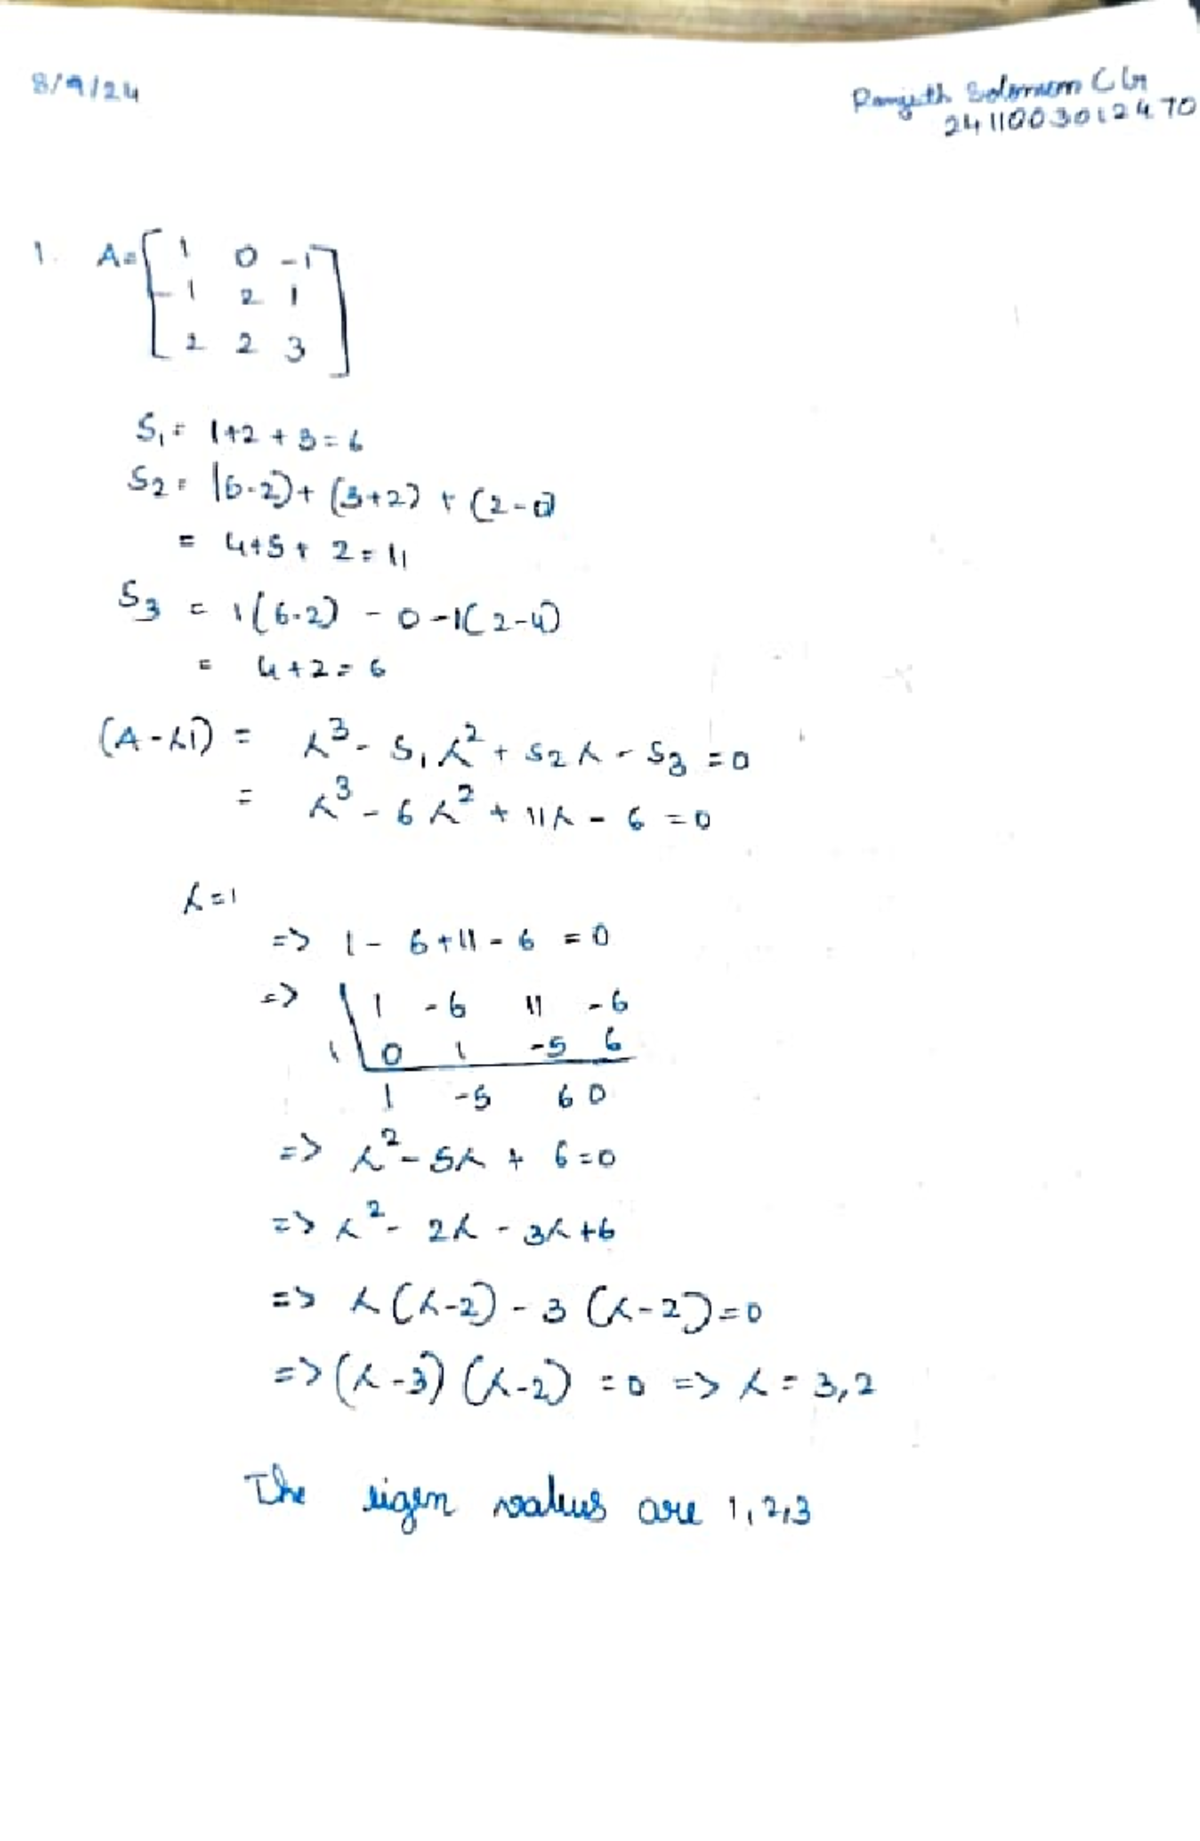 8/9/24
Ranjith Solomom C G
2411003012470
1. A = [ 1 0 -1
1 2 1
2 2 3 ]
S₁ = 1+2+3 = 6
S₂ = (6-2) + (3+2) + (2-0)
= 4+5+2 = 11
S₃ = 1(6-2) - 0 - 1(2-4)
= 4+2 = 6
(A-λI) = λ³ - S₁λ² + S₂λ - S₃ = 0
= λ³ - 6λ² + 11λ - 6 = 0
λ=1
=> 1 - 6 + 11 - 6 = 0
=> 1 -6 11 -6
1 0 1 -5 6
1 -5 6 0
=> λ² - 5λ + 6 = 0
=> λ² - 2λ - 3λ + 6
=> λ(λ-2) - 3(λ-2) = 0
=> (λ-3)(λ-2) = 0 => λ = 3,2
The eigen values are 1,2,3